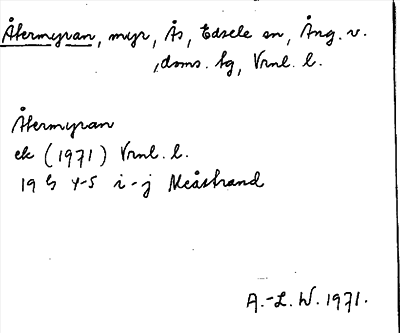 Åkermyran, myr, Ås, Edsele sn, Ång. v.
doms. tg, Vrnl. l.
Åkermyran
ek (1971) Vrnl. l.
19 G 4-5 i-j Meåstrand
A.-L. W. 1971.